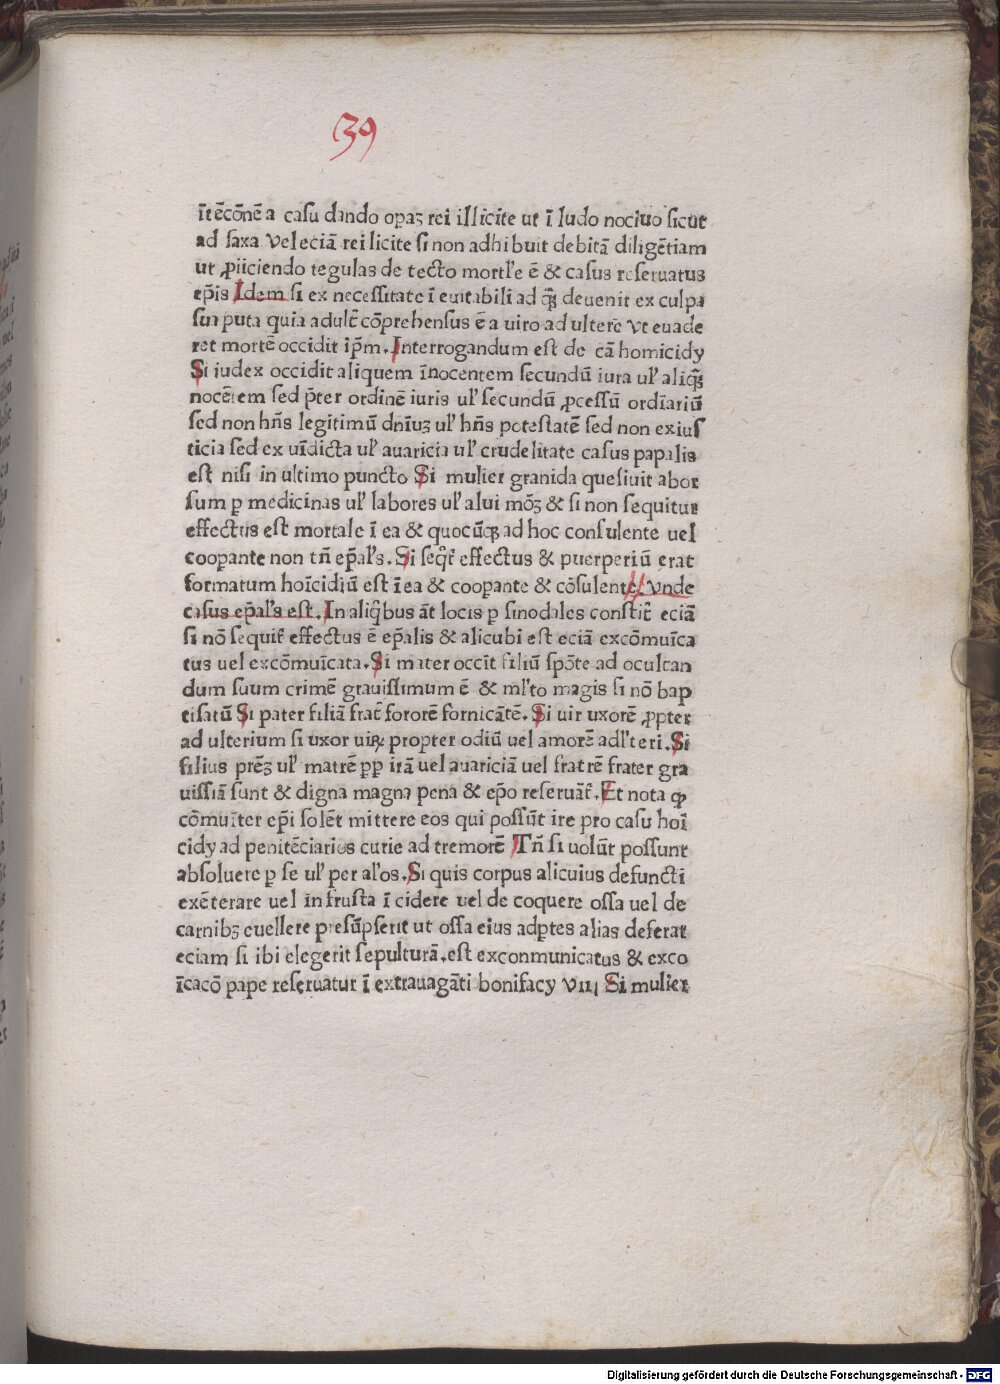 39
ītēcōnē a casu dando opaꝫ rei illicite ut ī ludo nociuo sicut
ad saxa Vel eciā rei licite si non adhibuit debitā diligētiam
ut ꝓiiciendo tegulas de tecto mortl'e ē & casus reseruatus
ep̄is Idem si ex necessitate ī euitabili ad qꝫ deuenit ex culpa
sua puta quia adult̄ cōprehensus ē a uiro ad ultere Vt euade
ret mortē occidit ip̄m. Interrogandum est de cā homicidy
Si iudex occidit aliquem īnocentem secundū iura ul' aliqꝫ
nocētem sed p̄ter ordinē iuris ul' secundū ꝓcessū ordīariū
sed non hn̄s legitimū dn̄iuꝫ ul' hn̄s potestatē sed non ex ius
ticia sed ex uīdicta ul' auaricia ul' crudelitate casus papalis
est nisi in ultimo puncto Si mulier granida quesiuit abor
sum ꝑ medicinas ul' labores ul' alui mōꝫ & si non sequitur
effectus est mortale ī ea & quocūqꝫ ad hoc consulente uel
coopante non tn̄ ep̄al's. Si seqr̄ effectus & puerperiū erat
formatum hoīcidiū est ī ea & coopante & cōsulente Vnde
casus ep̄al's est. In aliqibus āt locis ꝑ sinodales constit̄ eciā
si nō sequit̄ effectus ē ep̄alis & alicubi est eciā excōmuīca
tus uel excōmuīcata. Si mater occīt filiū spōte ad ocultan
dum suum crimē grauissimum ē & ml'to magis si nō bap
tisatū Si pater filiā frat̄ sororē fornicātē. Si uir uxorē ꝓpter
ad ulterium si uxor uiꝝ propter odiū uel amorē adl'teri. Si
filius prēꝫ ul' matrē ꝑp irā uel auariciā uel fratrē frater gra
uissiā sunt & digna magna pena & ep̄o reseruāt̄. Et nota ꝙ
cōmuīter ep̄i solēt mittere eos qui possūt ire pro casu hoī
cidy ad penitēciarios curie ad tremorē Tn̄ si uolūt possunt
absoluere ꝑ se ul' per al'os. Si quis corpus alicuius defuncti
exēterare uel in frusta ī cidere uel de coquere ossa uel de
carnibꝫ euellere presūpserit ut ossa eius adptes alias deferat
eciam si ibi elegerit sepulturā. est exconmunicatus & exco
īcacō pape reseruatur ī extrauagāti bonifacy Viij Si mulier
Digitalisierung gefördert durch die Deutsche Forschungsgemeinschaft - DFG